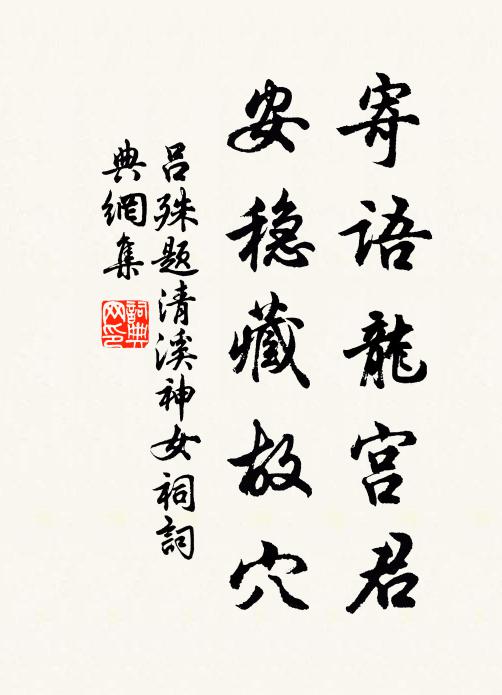 寄语龍宫君
安穏藏故穴
吕殊题清溪神女祠詞
典網集
詞典
网印